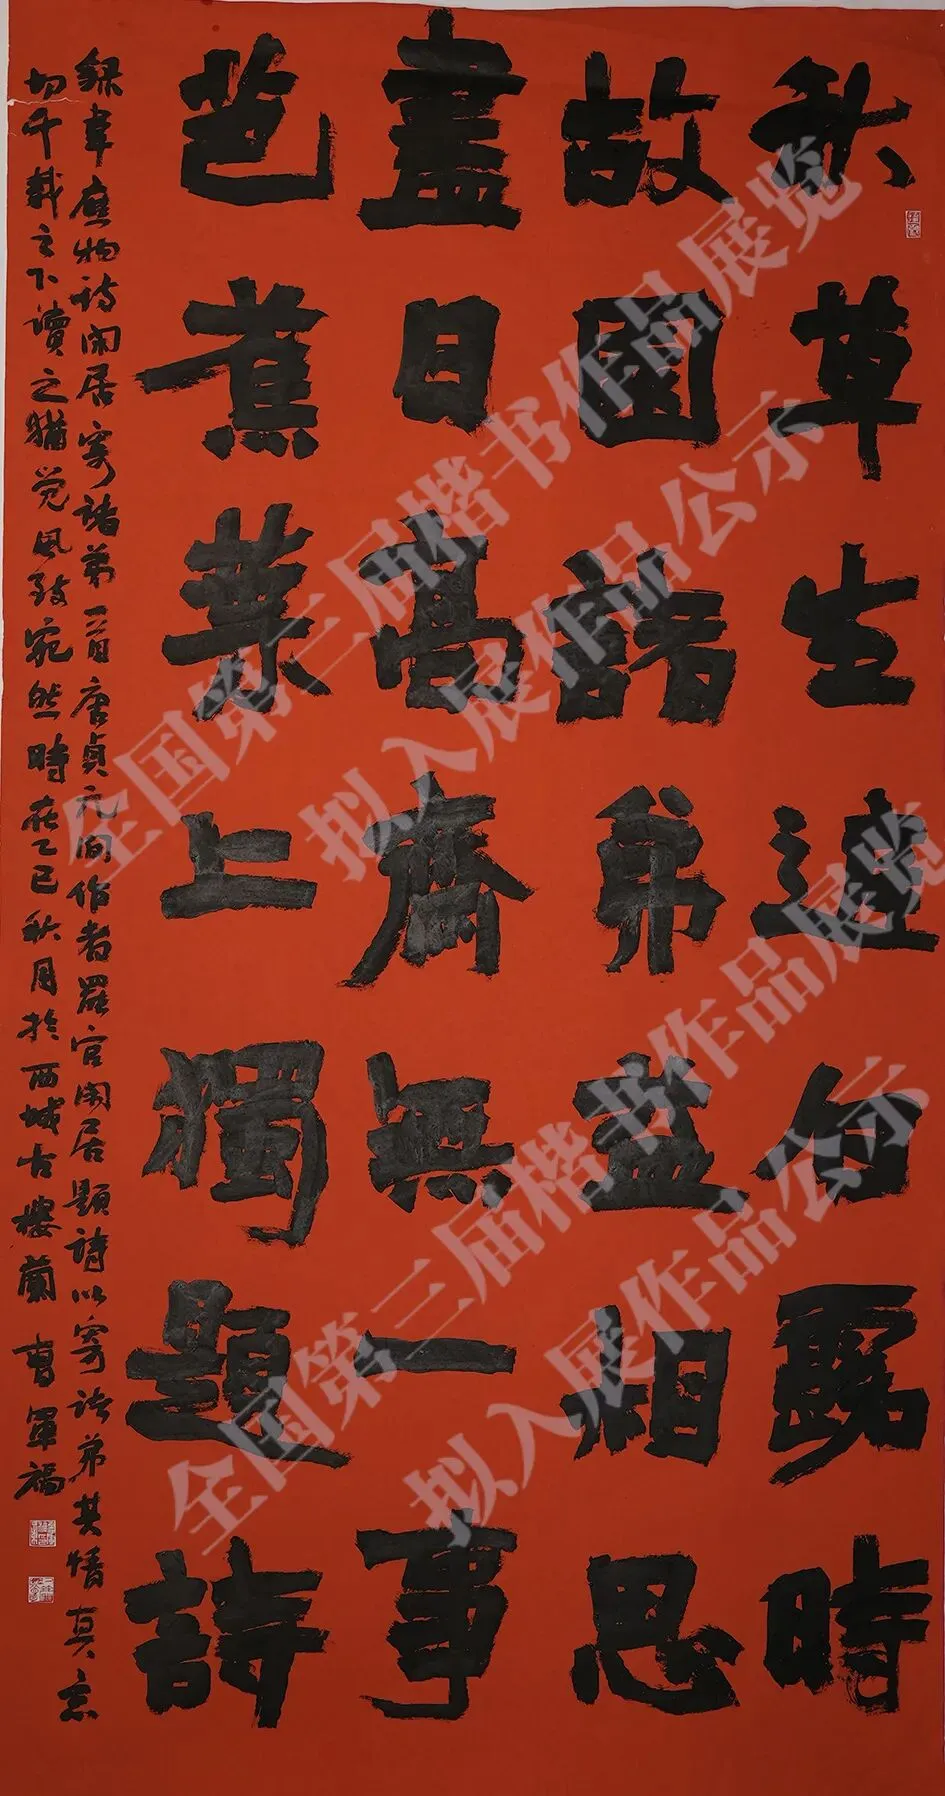 秋草生廷白露時
故園諸弟益相思
盡日高齋無一事
芭蕉葉上獨題詩
録韋應物詩閑居寄諸弟一首唐貞元間作者罷官閑居題詩以寄諸弟其情真意
切千載之下讀之猶覺風致宛然時在乙巳秋月於西域古樓蘭曹軍福
全国第三届楷书作品展览
拟入展作品公示
全国第三届楷书作品展览
拟入展作品公示